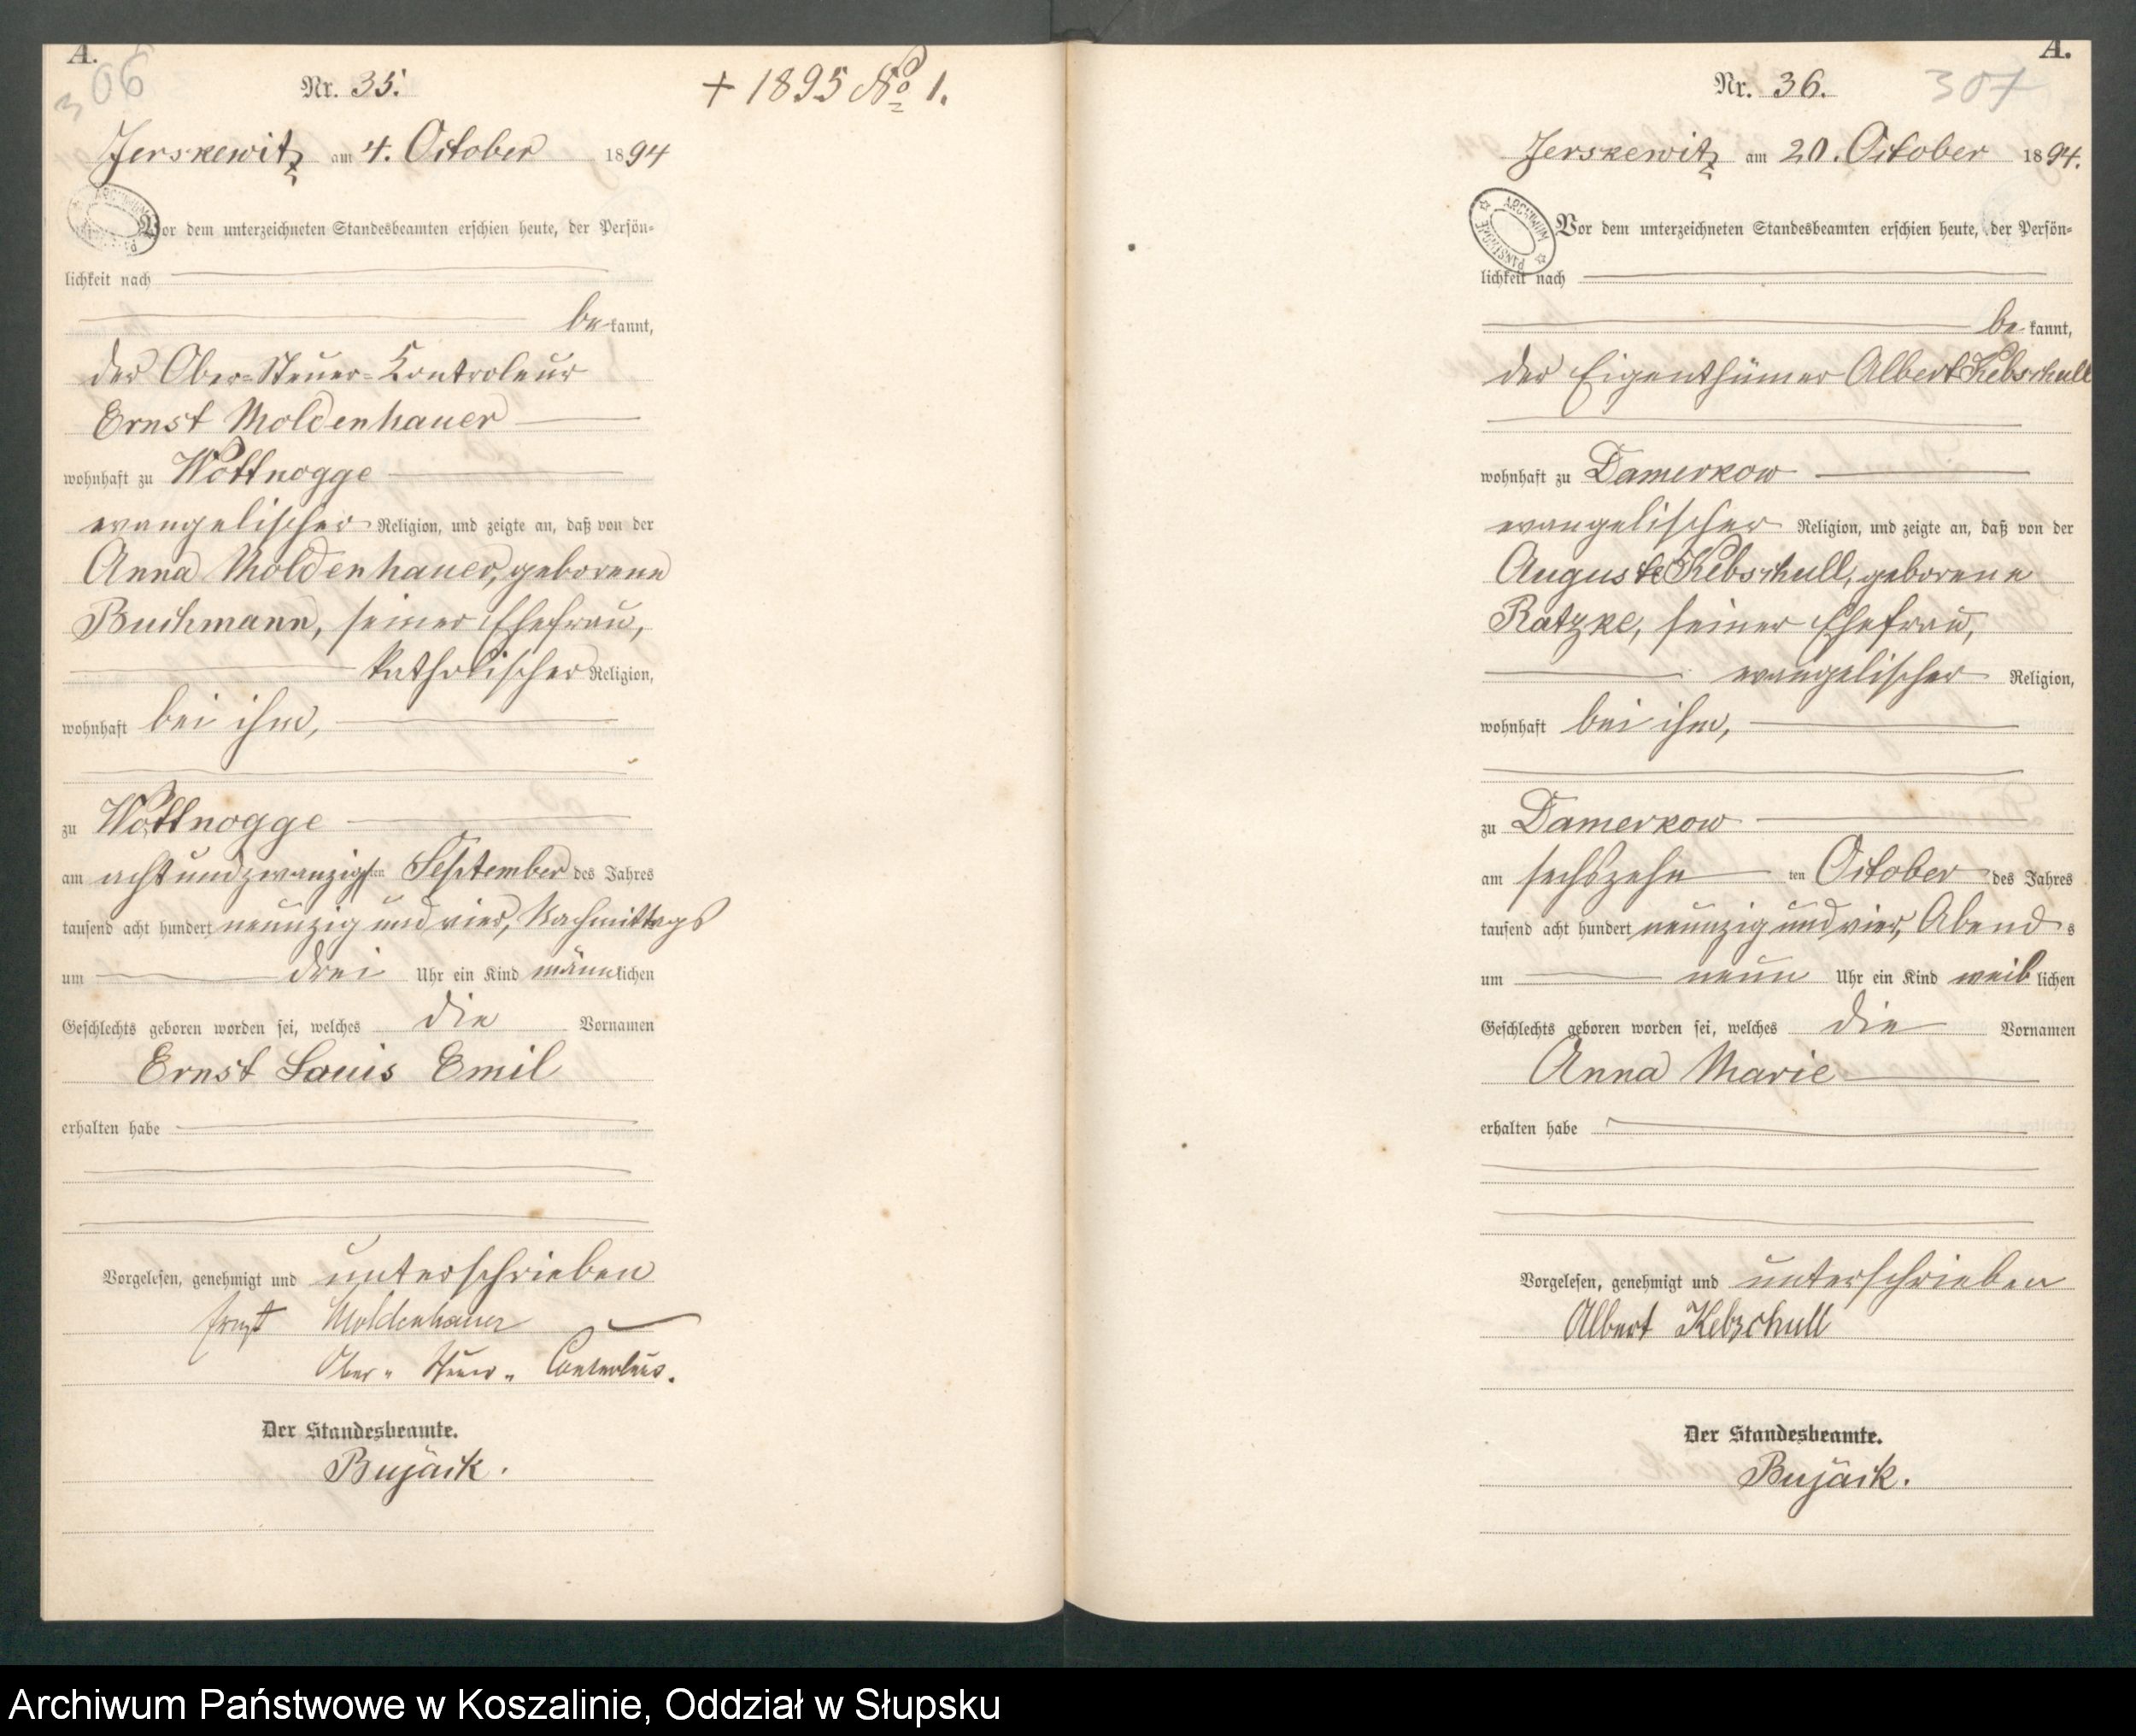 A.
306
Nr. 35.
+ 1895 No 1.
Jerskewitz am 4. October 1894
Vor dem unterzeichneten Standesbeamten erschien heute, der Persön-
lichkeit nach
be kannt,
der Ober-Steuer-Controleur
Ernst Moldenhauer
wohnhaft zu Wottnogge
evangelischer Religion, und zeigte an, daß von der
Anna Moldenhauer, geborene
Buchmann, seiner Ehefrau,
katholischer Religion,
wohnhaft bei ihm,
zu Wottnogge
am achtundzwanzigsten September des Jahres
tausend acht hundert neunzig und vier, Nachmittags
um drei Uhr ein Kind männlichen
Geschlechts geboren worden sei, welches die Vornamen
Ernst Louis Emil
erhalten habe
Vorgelesen, genehmigt und unterschrieben
Ernst Moldenhauer
Ober-Steuer-Controleur.
Der Standesbeamte.
Bujäck.
A.
307
Nr. 36.
Jerskewitz am 20. October 1894.
ARCHIWUM PAŃSTWOWE
Vor dem unterzeichneten Standesbeamten erschien heute, der Persön-
lichkeit nach
be kannt,
der Eigenthümer Albert Kebschull
wohnhaft zu Damerkow
evangelischer Religion, und zeigte an, daß von der
Auguste Kebschull, geborene
Ratzke, seiner Ehefrau,
evangelischer Religion,
wohnhaft bei ihm,
zu Damerkow
am sechszehn ten October des Jahres
tausend acht hundert neunzig und vier, Abend s
um neun Uhr ein Kind weib lichen
Geschlechts geboren worden sei, welches die Vornamen
Anna Marie
erhalten habe
Vorgelesen, genehmigt und unterschrieben
Albert Kebschull
Der Standesbeamte.
Bujäck.
Archiwum Państwowe w Koszalinie, Oddział w Słupsku